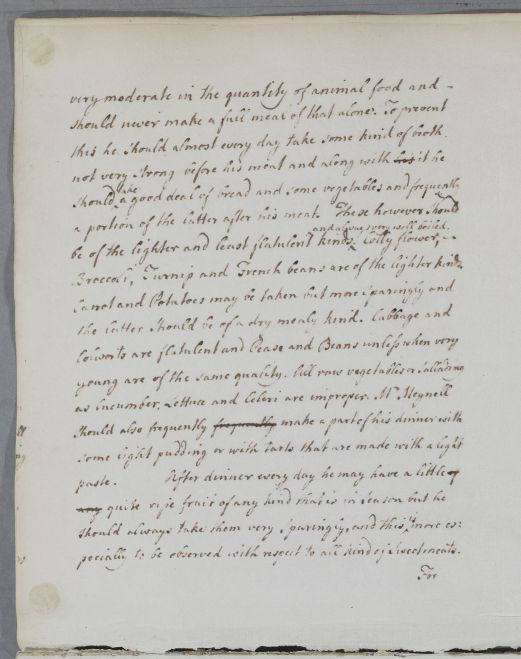 very moderate in the quantity of animal food and -
should never make a full meal of that alone. To prevent
this he should almost every day take some kind of broth,
not very strong before his meat and along with his it he
should take a good deal of bread and some vegetables and frequently
a portion of the latter after his meat. These however should
be of the lighter and least flatulent kinds, and always very well boiled. Colly flower, -
Broccoli, Turnip and French beans are of the lighter kinds.
Carrot and Potatoes may be taken but more sparingly and
the latter should be of a dry mealy kind. Cabbage and
Colworts are flatulent and Pease and Beans unless when very
young are of the same quality. All raw vegetables or Salading
as cucumber, Lettuce and Celeri are improper. Mr. Meynell
should also frequently frequently make a part of his dinner with
some light pudding or with tarts that are made with a light
paste. After dinner every day he may have a little of
any quite ripe fruit of any kind that is in season but he
should always take them very sparingly, and this is more es:
pecially to be observed with respect to all kind of sweetmeats.
For